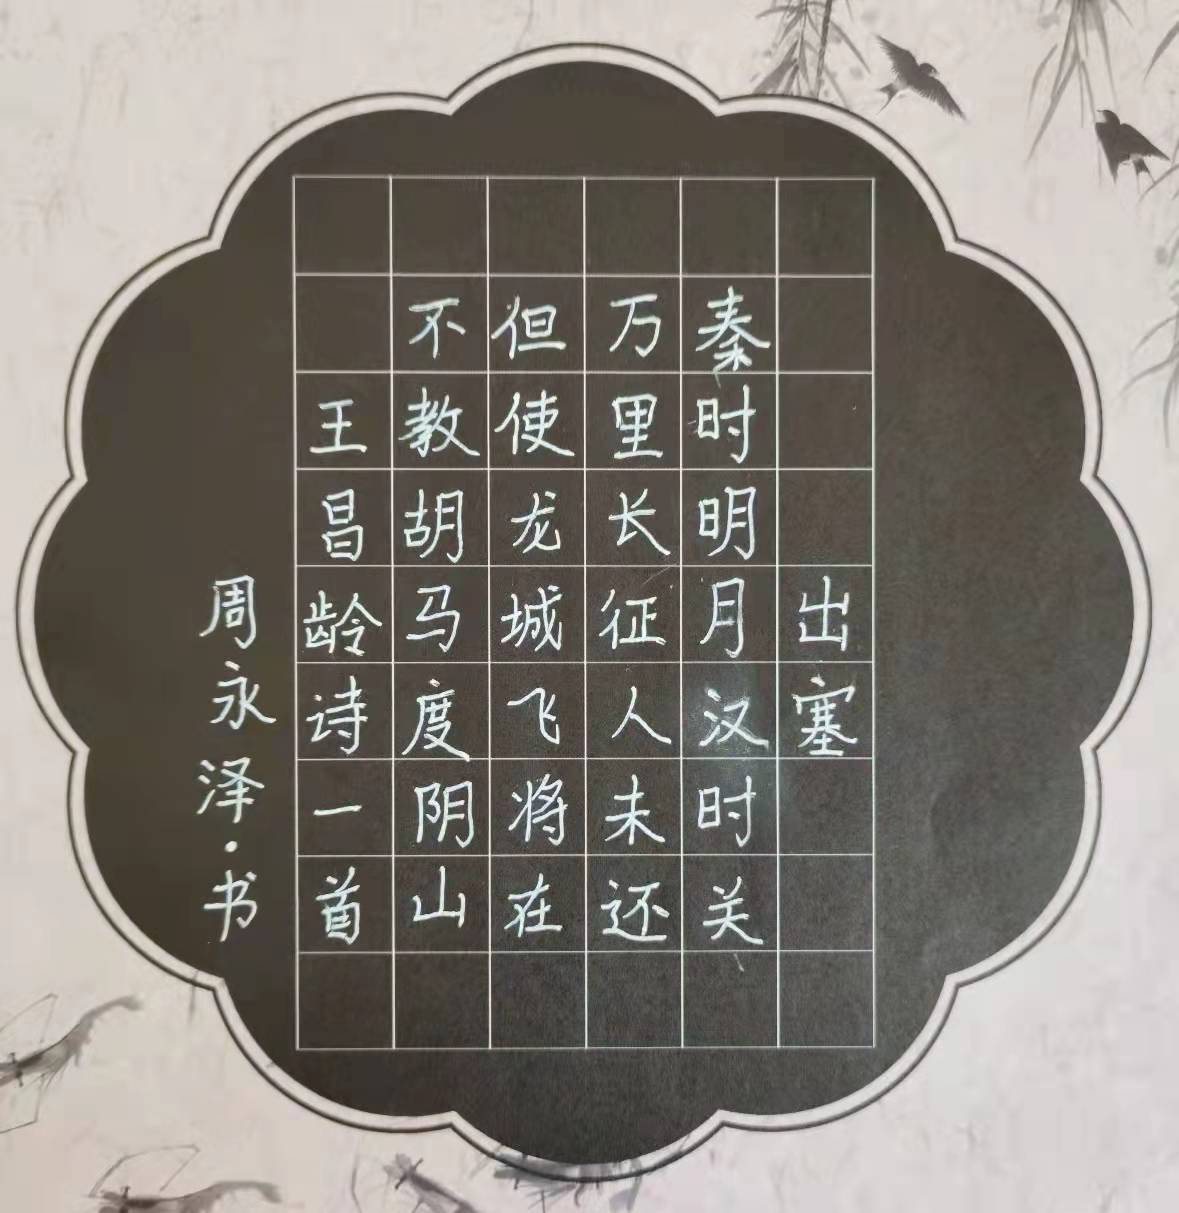 出塞
秦时明月汉时关
万里长征人未还
但使龙城飞将在
不教胡马度阴山
王昌龄诗一首
周永泽·书